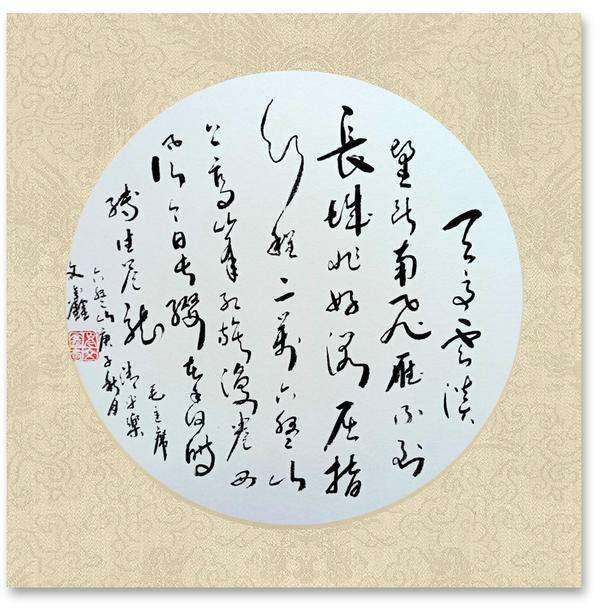 天高雲淡
望断南飛雁不到
長城非好漢屈指
行程二萬六盤山
上高峰红旗漫卷西
风今日长缨在手何時
缚住苍龙
毛主席
清平樂
六盤山庚子秋月